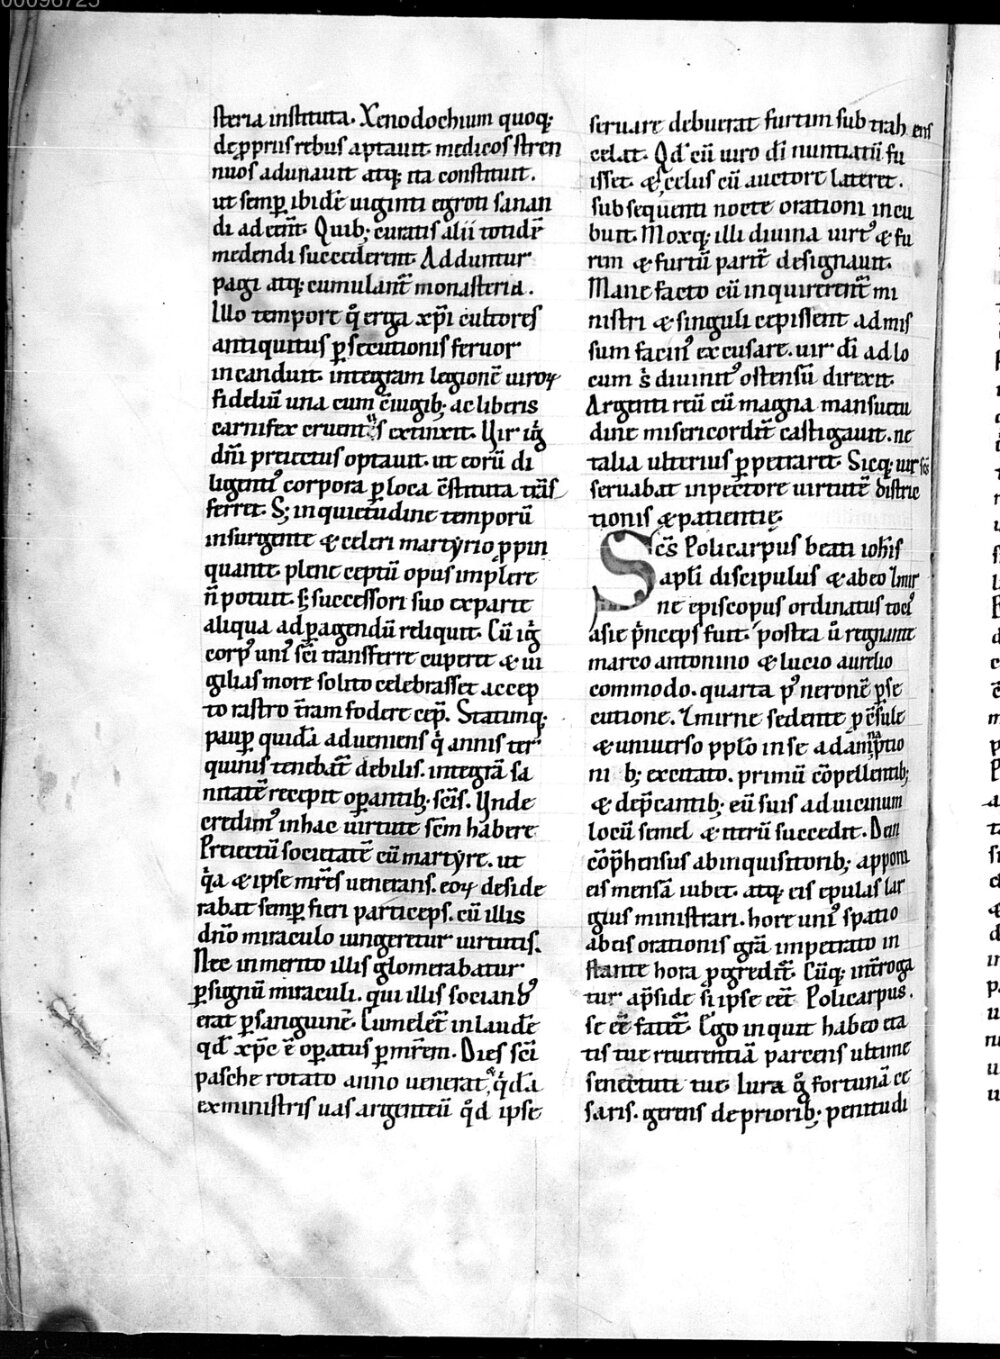 00096725
steria instituta. Xenodochium quoq;
de ꝓprus rebus aptauit. medicos stren
nuos adunauit atq; ita constituit.
ut semꝑ ibidē uiginti egroti sanan
di adeēnt. Quib; curatis alii totidē
medendi succederent. Adduntur
pagi atq; cumulant̄ monasteria.
Illo tempore q̊ erga xp̄i cultores
antiquitus ꝑsecutionis feruor
incanduit. integram legionē uiroꝝ
fideliū una cum c̄iugib; ac liberis
carnifex cruentus extinxit. Vir iḡ
dn̄i preiectus optauit. ut eorū di
ligentiꝰ corpora ꝑ loca c̄stituta trās
ferret. S; inquietudine temporū
insurgente & celeri martyrio ꝓpin
quante. plene ceptū opus implere
n̄ potuit. S; successori suo ex parte
aliqua ad ꝑagendū reliquit. Cū iḡ
corpꝰ uniꝰ sc̄i transferre cuperet & ui
gilias more solito celebrasset accep
to rastro t̄ram fodere cep̄. Statimq;
pauꝑ quidā adueniens q̇ annis ter
quinis tenebat̄ debilis. integrā sa
nitatē recepit oꝑantib; sc̄is. Unde
credimꝰ in hac uirtute sēm habere
Preiectū societatē cū martyre. ut
q̇a & ipse mr̄es uenerans. eoꝝ deside
rabat semꝑ fieri particeps. cū illis
dn̄o miraculo iungeretur uirtutis.
Nec inmerito illis glomerabatur
ꝑ signū miraculi. qui illis socianđꝰ
erat ꝑ sanguinē. Cumelet̄ in laudē
qđ xp̄c ē oꝑatus ꝑ mr̄em. Dies sc̄i
pasche rotato anno uenerat, q̇dā
ex ministris uas argenteū q̊d ipse
seruare debuerat furtim subtrahens
celat. Qđ cū uiro di nuntiatū fu
isset. & scelus cū auctore lateret.
subsequenti nocte orationi incu
buit. Moxq; illi diuina uirtꝰ & fu
rem & furtū parit̄ designauit.
Mane facto cū inquirerent̄ mi
nistri & singuli cepissent admis
sum facinꝰ excusare. uir di ad lo
cum s̄ diuinitꝰ ostensū direxit.
Argenti reū cū magna mansuetu
dine misericordit̄ castigauit. ne
talia ulterius ꝑpetraret. Sicq; uir sc̄s
seruabat in pectore uirtutē distric
tionis & patientię.
Sc̄s Policarpus beati ioh̄is
apl̄i discipulus & ab eo Zmir
ne episcopus ordinatus totiꝰ
asie p̄nceps fuit. postea ū regnante
marco antonino & lucio aurelio
commodo. quarta pꝰ neronē ꝑse
cutione. Zmirne sedente ꝓc̄sule
& uniuerso pplo in se ad dāmnaptio
ni b; excitato. primū cōpellentib;
& dep̄cantib; eū suis ad uicinum
locū semel & iterū succedit. Dein
cōp̄hensus ab inquisitorib; apponi
eis mensā iubet. atq; eis epulas lar
gius ministrari. hore uniꝰ spatio
ab eis orationis gr̄a impetrato in
stante hora ꝓgredit̄. Cūq; int̄roga
tur a p̄side si ipse eēt Policarpus.
se eē fatet̄. Ego inquit habeo eta
tis tue reuerentiā parcens ultime
senectuti tue. Iura q̊ fortunā ce
saris. gerens de priorib; penitudi